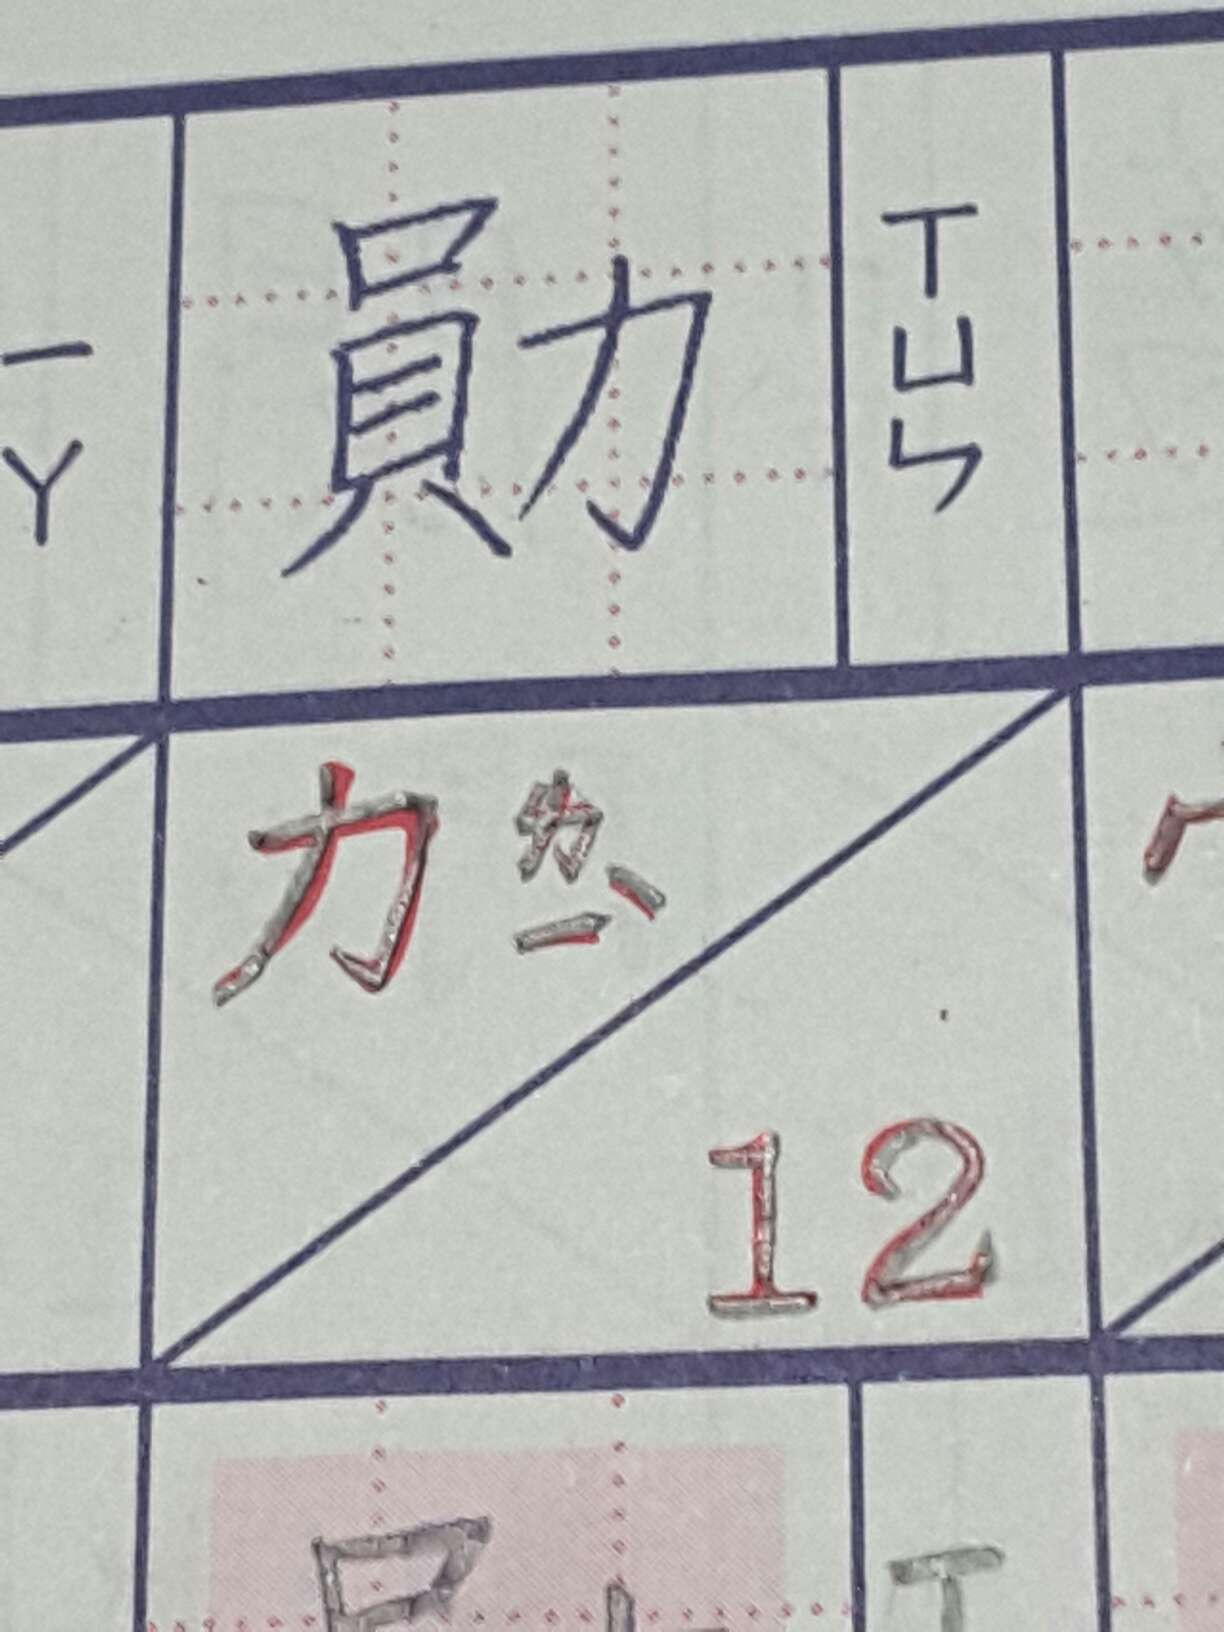 ㄧㄚ
勛 ㄒㄩㄣ
力 ㄌㄧˋ
12
ㄒ